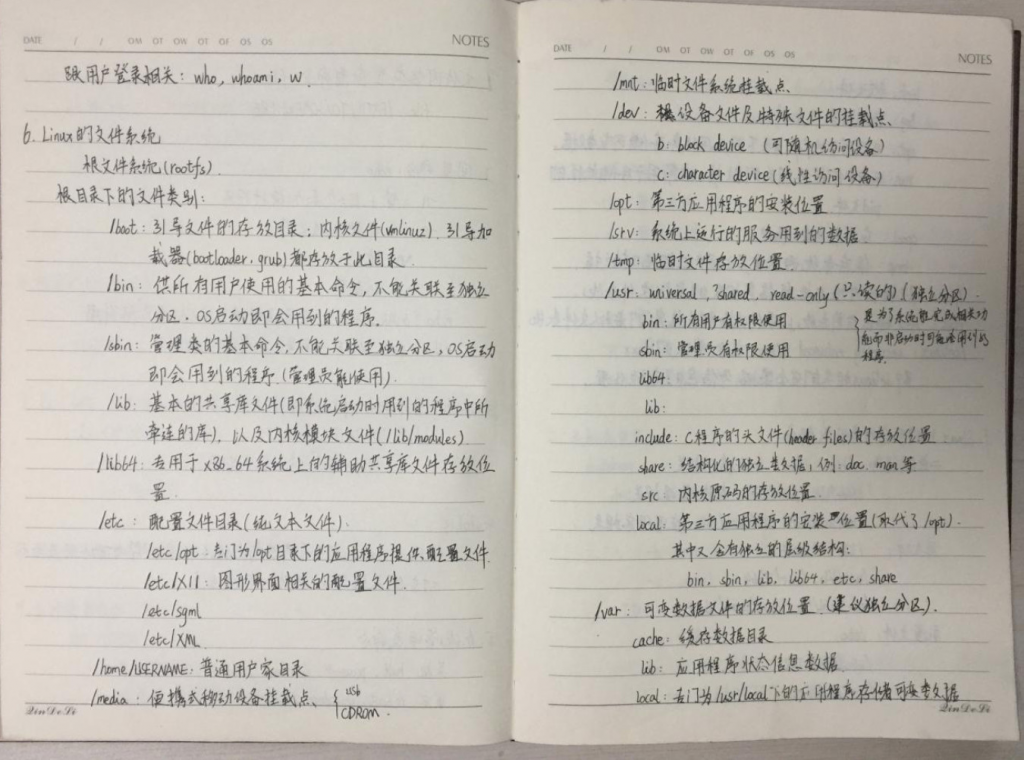 DATE / / OM OT OW OT OF OS OS NOTES
跟用户登录相关: who, whoami, w.
6. Linux的文件系统
根文件系统(rootfs).
根目录下的文件类别:
/boot: 引导文件的存放目录; 内核文件(vmlinuz). 引导加
载器(bootloader, grub)都存放于此目录.
/bin: 供所有用户使用的基本命令, 不能关联至独立
分区. OS启动即会用到的程序.
/sbin: 管理类的基本命令, 不能关联至独立分区, OS启动
即会用到的程序. (管理员能使用).
/lib: 基本的共享库文件(即系统启动时用到的程序中所
牵连的库). 以及内核模块文件(/lib/modules)
/lib64: 专用于x86_64系统上的辅助共享库文件存放位
置.
/etc: 配置文件目录(纯文本文件).
/etc/opt: 专门为/opt目录下的应用程序提供配置文件.
/etc/X11: 图形界面相关的配置文件.
/etc/sgml
/etc/XML
/home/USERNAME: 普通用户家目录
/media: 便携式移动设备挂载点、 { usb
CDROM.
QinDeLi
DATE / / OM OT OW OT OF OS OS NOTES
/mnt: 临时文件系统挂载点.
/dev: 设备文件及特殊文件的挂载点、
b: block device (可随机访问设备)
c: character device (线性访问设备)
/opt: 第三方应用程序的安装位置
/srv: 系统上运行的服务用到的数据
/tmp: 临时文件存放位置.
/usr: universal, shared, read-only (只读的) (独立分区).
bin: 所有用户有权限使用
sbin: 管理员有权限使用
} 是为了系统能完成相关功
能而非启动时可能会用到的
程序.
lib64
lib:
include: C程序的头文件(header files)的存放位置
share: 结构化的独立类数据, 例: doc, man等
src 内核原码的存放位置.
local: 第三方应用程序的安装位置(取代了/opt).
其中又会有独立的层级结构:
bin, sbin, lib, lib64, etc, share
/var: 可变数据文件的存放位置. (建议独立分区).
cache: 缓存数据目录
lib: 应用程序状态信息数据
local: 专门为/usr/local下的应用程序存储可变数据
QinDeLi